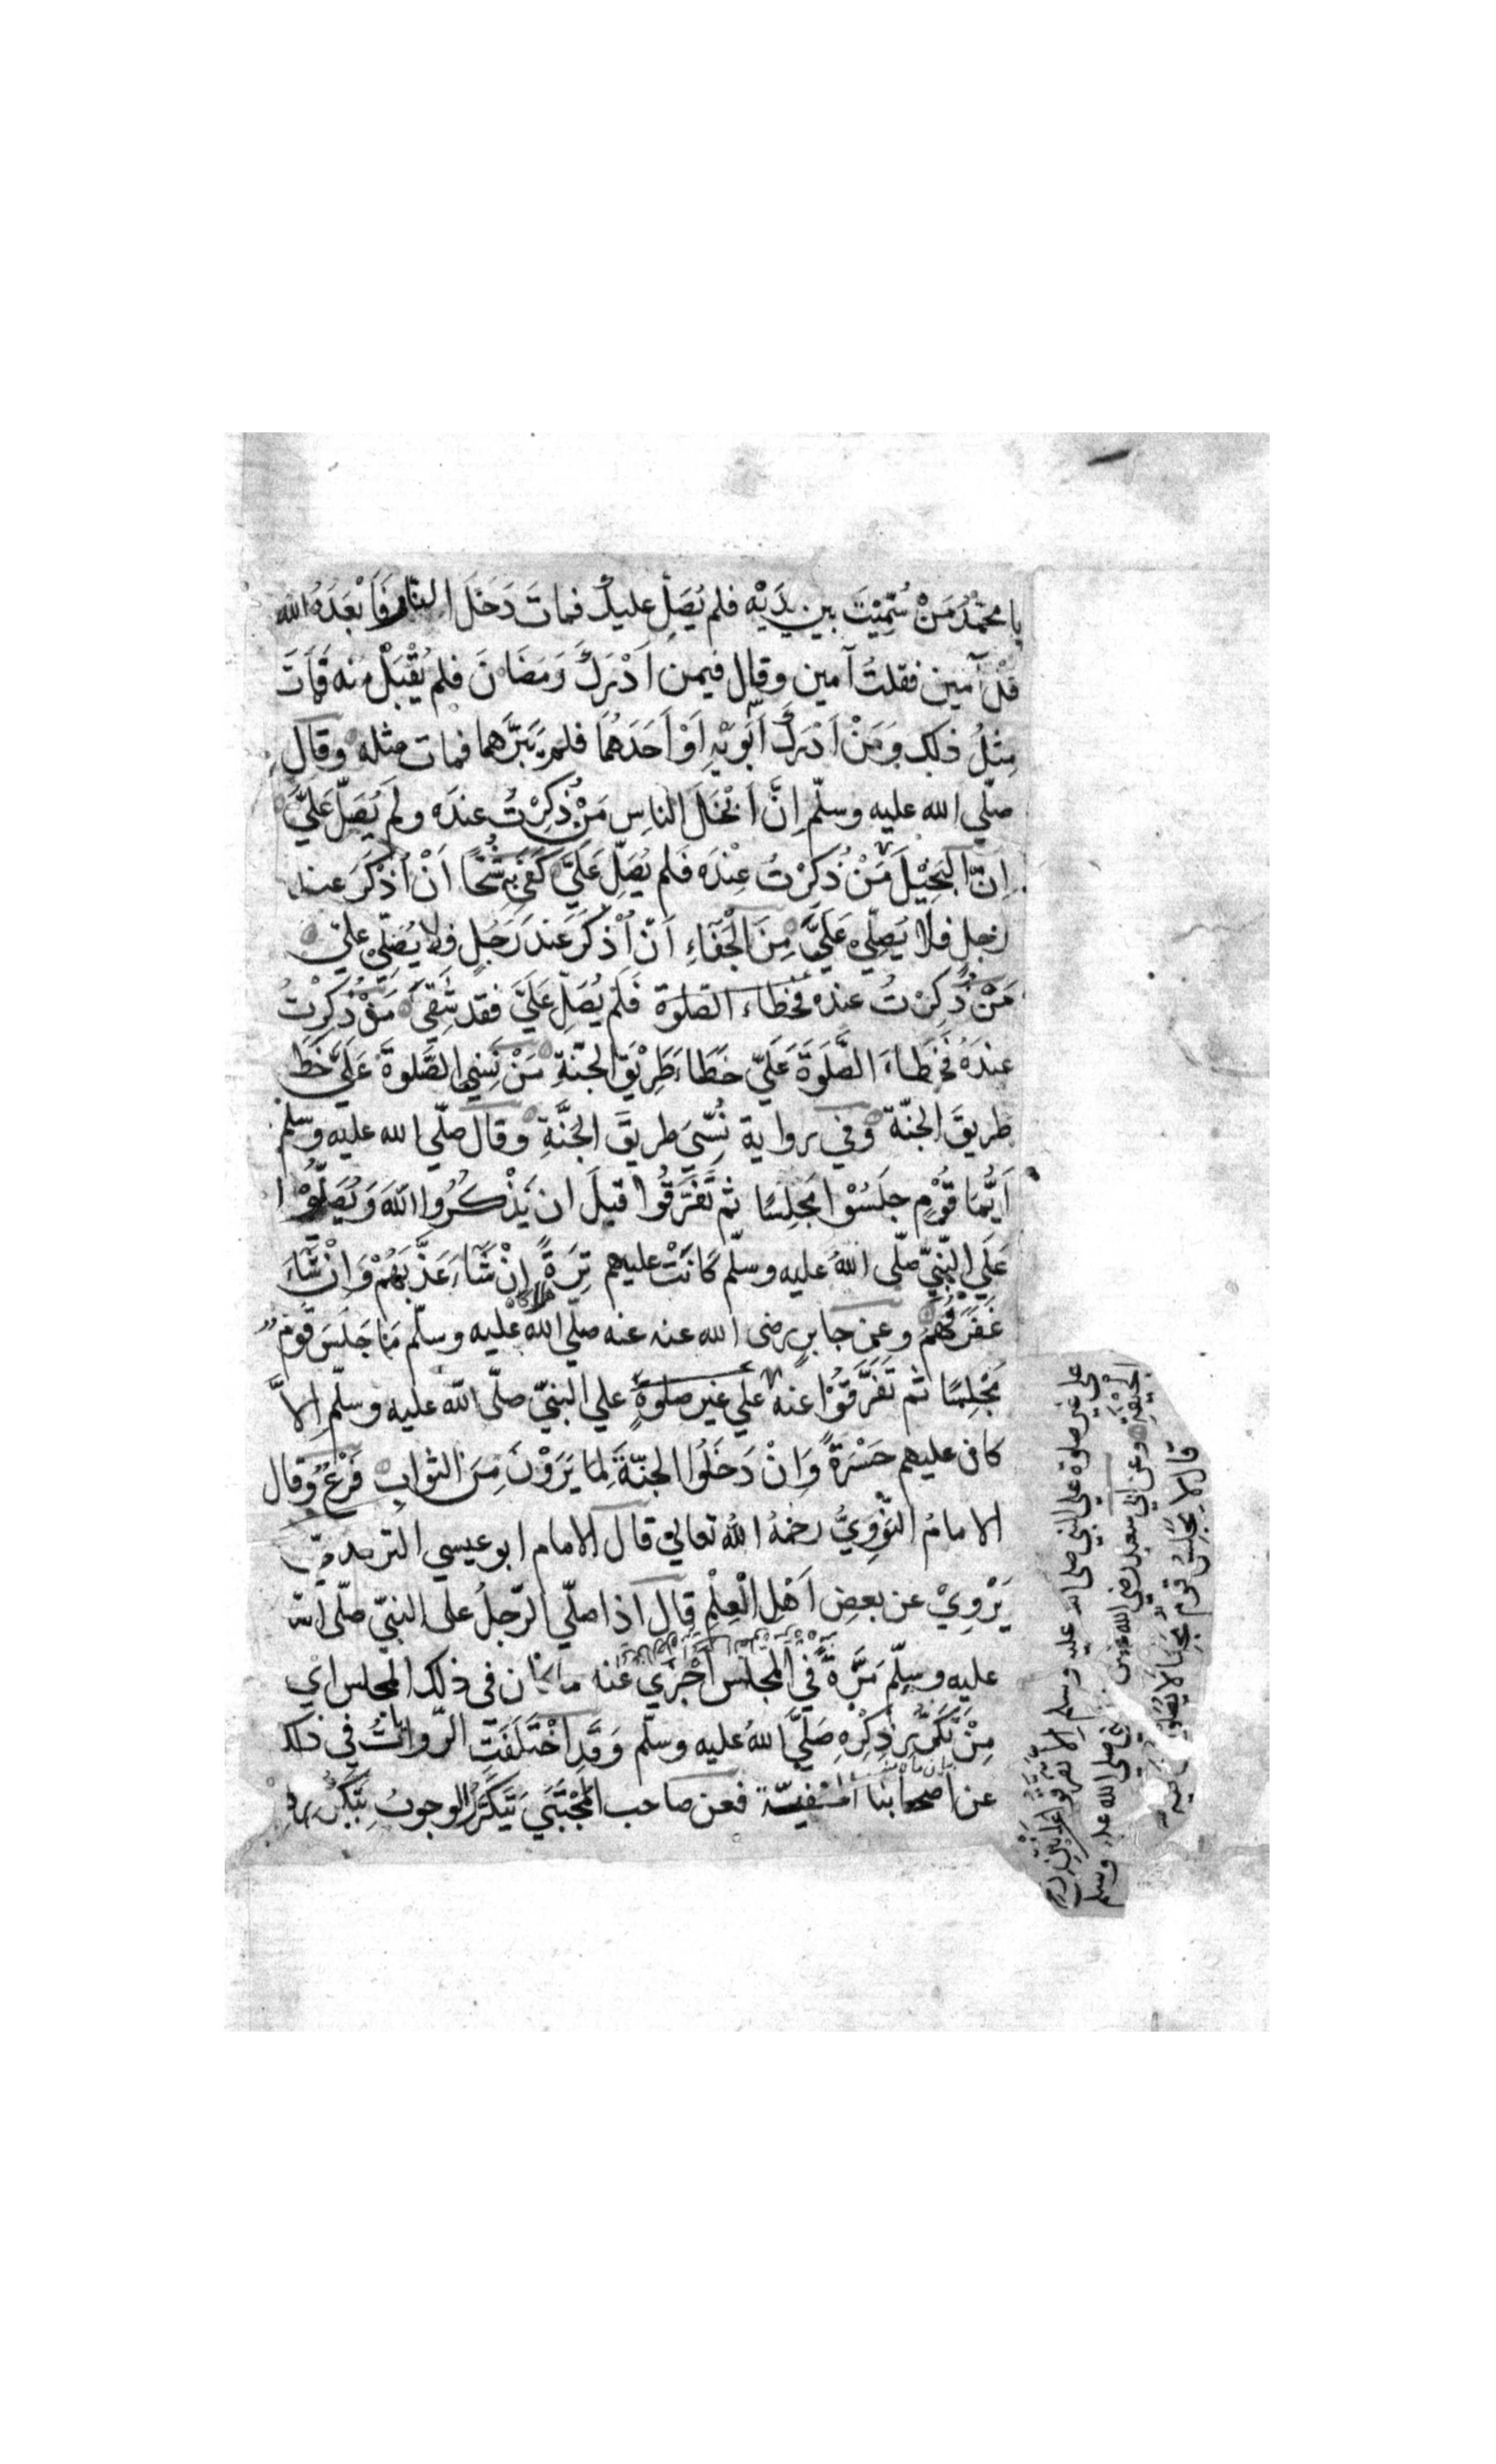 يا محمّدُ مَنْ سُمِّيْتَ بين يدَيْه فلم يُصَلِّ عليكَ فمات دَخَلَ النّار فَاَبْعَدَهُ الله
قُلْ آمين فقلتُ آمين وقال فيمن اَدْرَكَ رَمَضَانَ فلم يُقْبَلْ منه فمَاتَ
مِثلُ ذلك وَمَنْ اَدْرَكَ اَبَوَيْهِ اَوْ اَحَدَهُمَا فلم يَبَرَّهما فمات مثله وقال
صلّي الله عليه وسلّم اِنَّ اَبْخَلَ الناسِ مَنْ ذُكِرْتُ عندَه ولم يُصَلّ عَلَيَّ
اِنّ البَخِيْلَ مَنْ ذُكِرْتُ عِنْدَه فَلم يُصَلِّ عَلَيَّ كَفَي بِه شُحًّا اَنْ اُذْكَرَ عند
رجلٍ فلا يُصَلِّي عَلَيَّ مِنَ الْجَفَآءِ اَنْ اُذْكَرَ عندَ رَجُلٍ فلا يُصَلّي عليّ
مَنْ ذُكِرْتُ عندَه فخطاء الصّلوة فَلَم يُصَلِّ عَلَيَّ فقد شَقِيَ مَنْ ذُكِرْتُ
عندَهُ فَخَطاءَ الصَّلَوَةَ عَلَيّ خَطَاءَ طَرِيْقَ الجنّةِ مَنْ نَسِيَ الصَّلوةَ عَلَيَّ خَطِ
طريقَ الجنّة وفي رواية نُسِّيَ طريقَ الجنَّةِ وقال صلّي الله عليه وسلم
اَيُّمَا قَوْمٍ جلَسُوْا مَجْلِسًا ثم تَفَرَّقُوا قبلَ ان يَذْكُرُوا اللّهَ وَيُصَلُّوْا
عَلَي النّبِيّ صلّى اللهُ عليه وسلّم كَانَتْ عليهم تِرَةً اِنْ شَآءَ عَذَّبَهُمْ وَاِنْ شَآءَ
غَفَرَ لَهُمْ وعن جابرٍ رضى الله عنه عنه صلّي الله عليه وسلّم مَا جَلَسَ قَومٌ
مَجْلِسًا ثم تَفَرَّقُوْا عنه علي غير صلوةٍ علي النبيّ صلّى الله عليه وسلّم اِلاَّ
كان عليهم حَسْرَةً وَاِنْ دَخَلُوا الجنّةَ لِمَا يَرَوْنَ مِنَ الثوابِ فَرْعٌ وقال
الامامُ النَّوَوِيُّ رحمَهُ اللهُ تعالي قال الامام ابو عيسي الترمدمّي
يَرْوِيْ عن بعضِ اَهْلِ الْعِلْمِ قال اذا صلّي الرّجلُ على النبيّ صلّى الله
عليه وسلّم مَرّةً في المَجْلسِ اَجْزي عنه ما كان في ذلك المَجلس اي
مِنْ تَكَرُّرِ ذِكْرِه صَلَيَّ اللهُ عليه وسلّم وَقَدِ اخْتَلَفَتِ الرّواياتُ في ذلك
عن اصحابنا فعن صاحب المُجْتَبَي يَتَكَرَّرُ الوجوبُ بِتَكَرُّرِه
على غير صلوة على النبي صلى الله عليه وسلم الا تفرقوا على انتن من
الجيفة وعن ابي سعيد رضي الله عنه عن صلي الله عليه وسلم
قال لا يجلس قوم مجلسا لا يصلون فيه